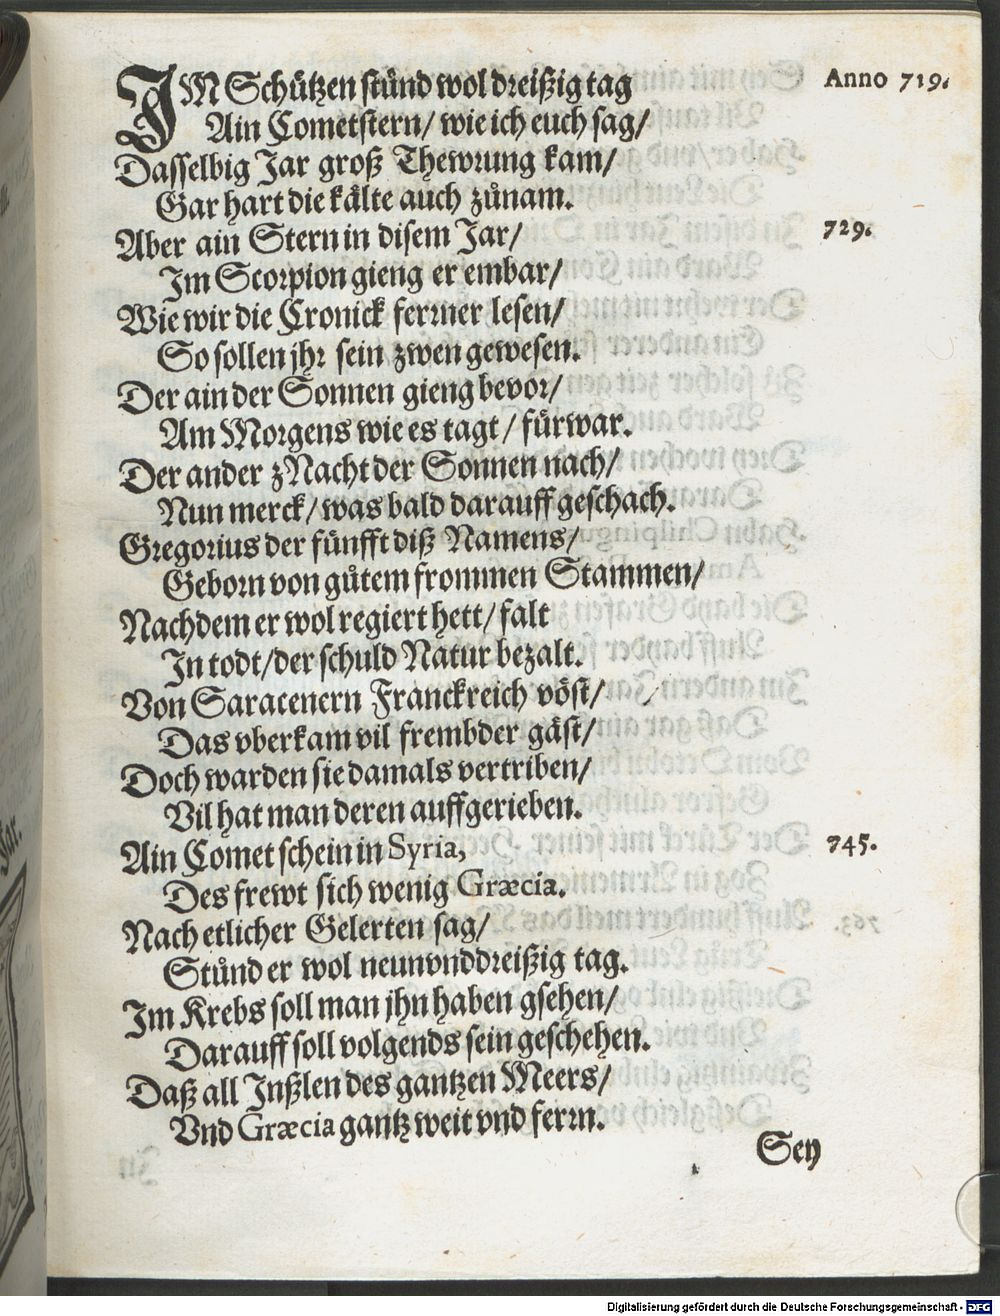 IM Schützen stůnd wol dreißig tag
Anno 719.
Ain Cometstern/ wie ich euch sag/
Dasselbig Jar groß Thewrung kam/
Gar hart die kålte auch zůnam.
Aber ain Stern in disem Jar/
729.
Im Scorpion gieng er embar/
Wie wir die Cronick ferrner lesen/
So sollen jhr sein zwen gewesen.
Der ain der Sonnen gieng bevor/
Am Morgens wie es tagt/ fürwar.
Der ander zNacht der Sonnen nach/
Nun merck/ was bald darauff geschach.
Gregorius der fünfft diß Namens/
Geborn von gůtem frommen Stammen/
Nachdem er wol regiert hett/ falt
In todt/ der schuld Natur bezalt.
Von Saracenern Franckreich vöst/
Das vberkam vil frembder gäst/
Doch warden sie damals vertriben/
Vil hat man deren auffgerieben.
Ain Comet schein in Syria,
745.
Des frewt sich wenig Græcia.
Nach etlicher Gelerten sag/
Stůnd er wol neunvnddreißig tag.
Im Krebs soll man jhn haben gsehen/
Darauff soll volgends sein geschehen.
Daß all Inßlen des gantzen Meers/
Vnd Græcia gantz weit vnd ferrn.
Sey
Digitalisierung gefördert durch die Deutsche Forschungsgemeinschaft - DFG